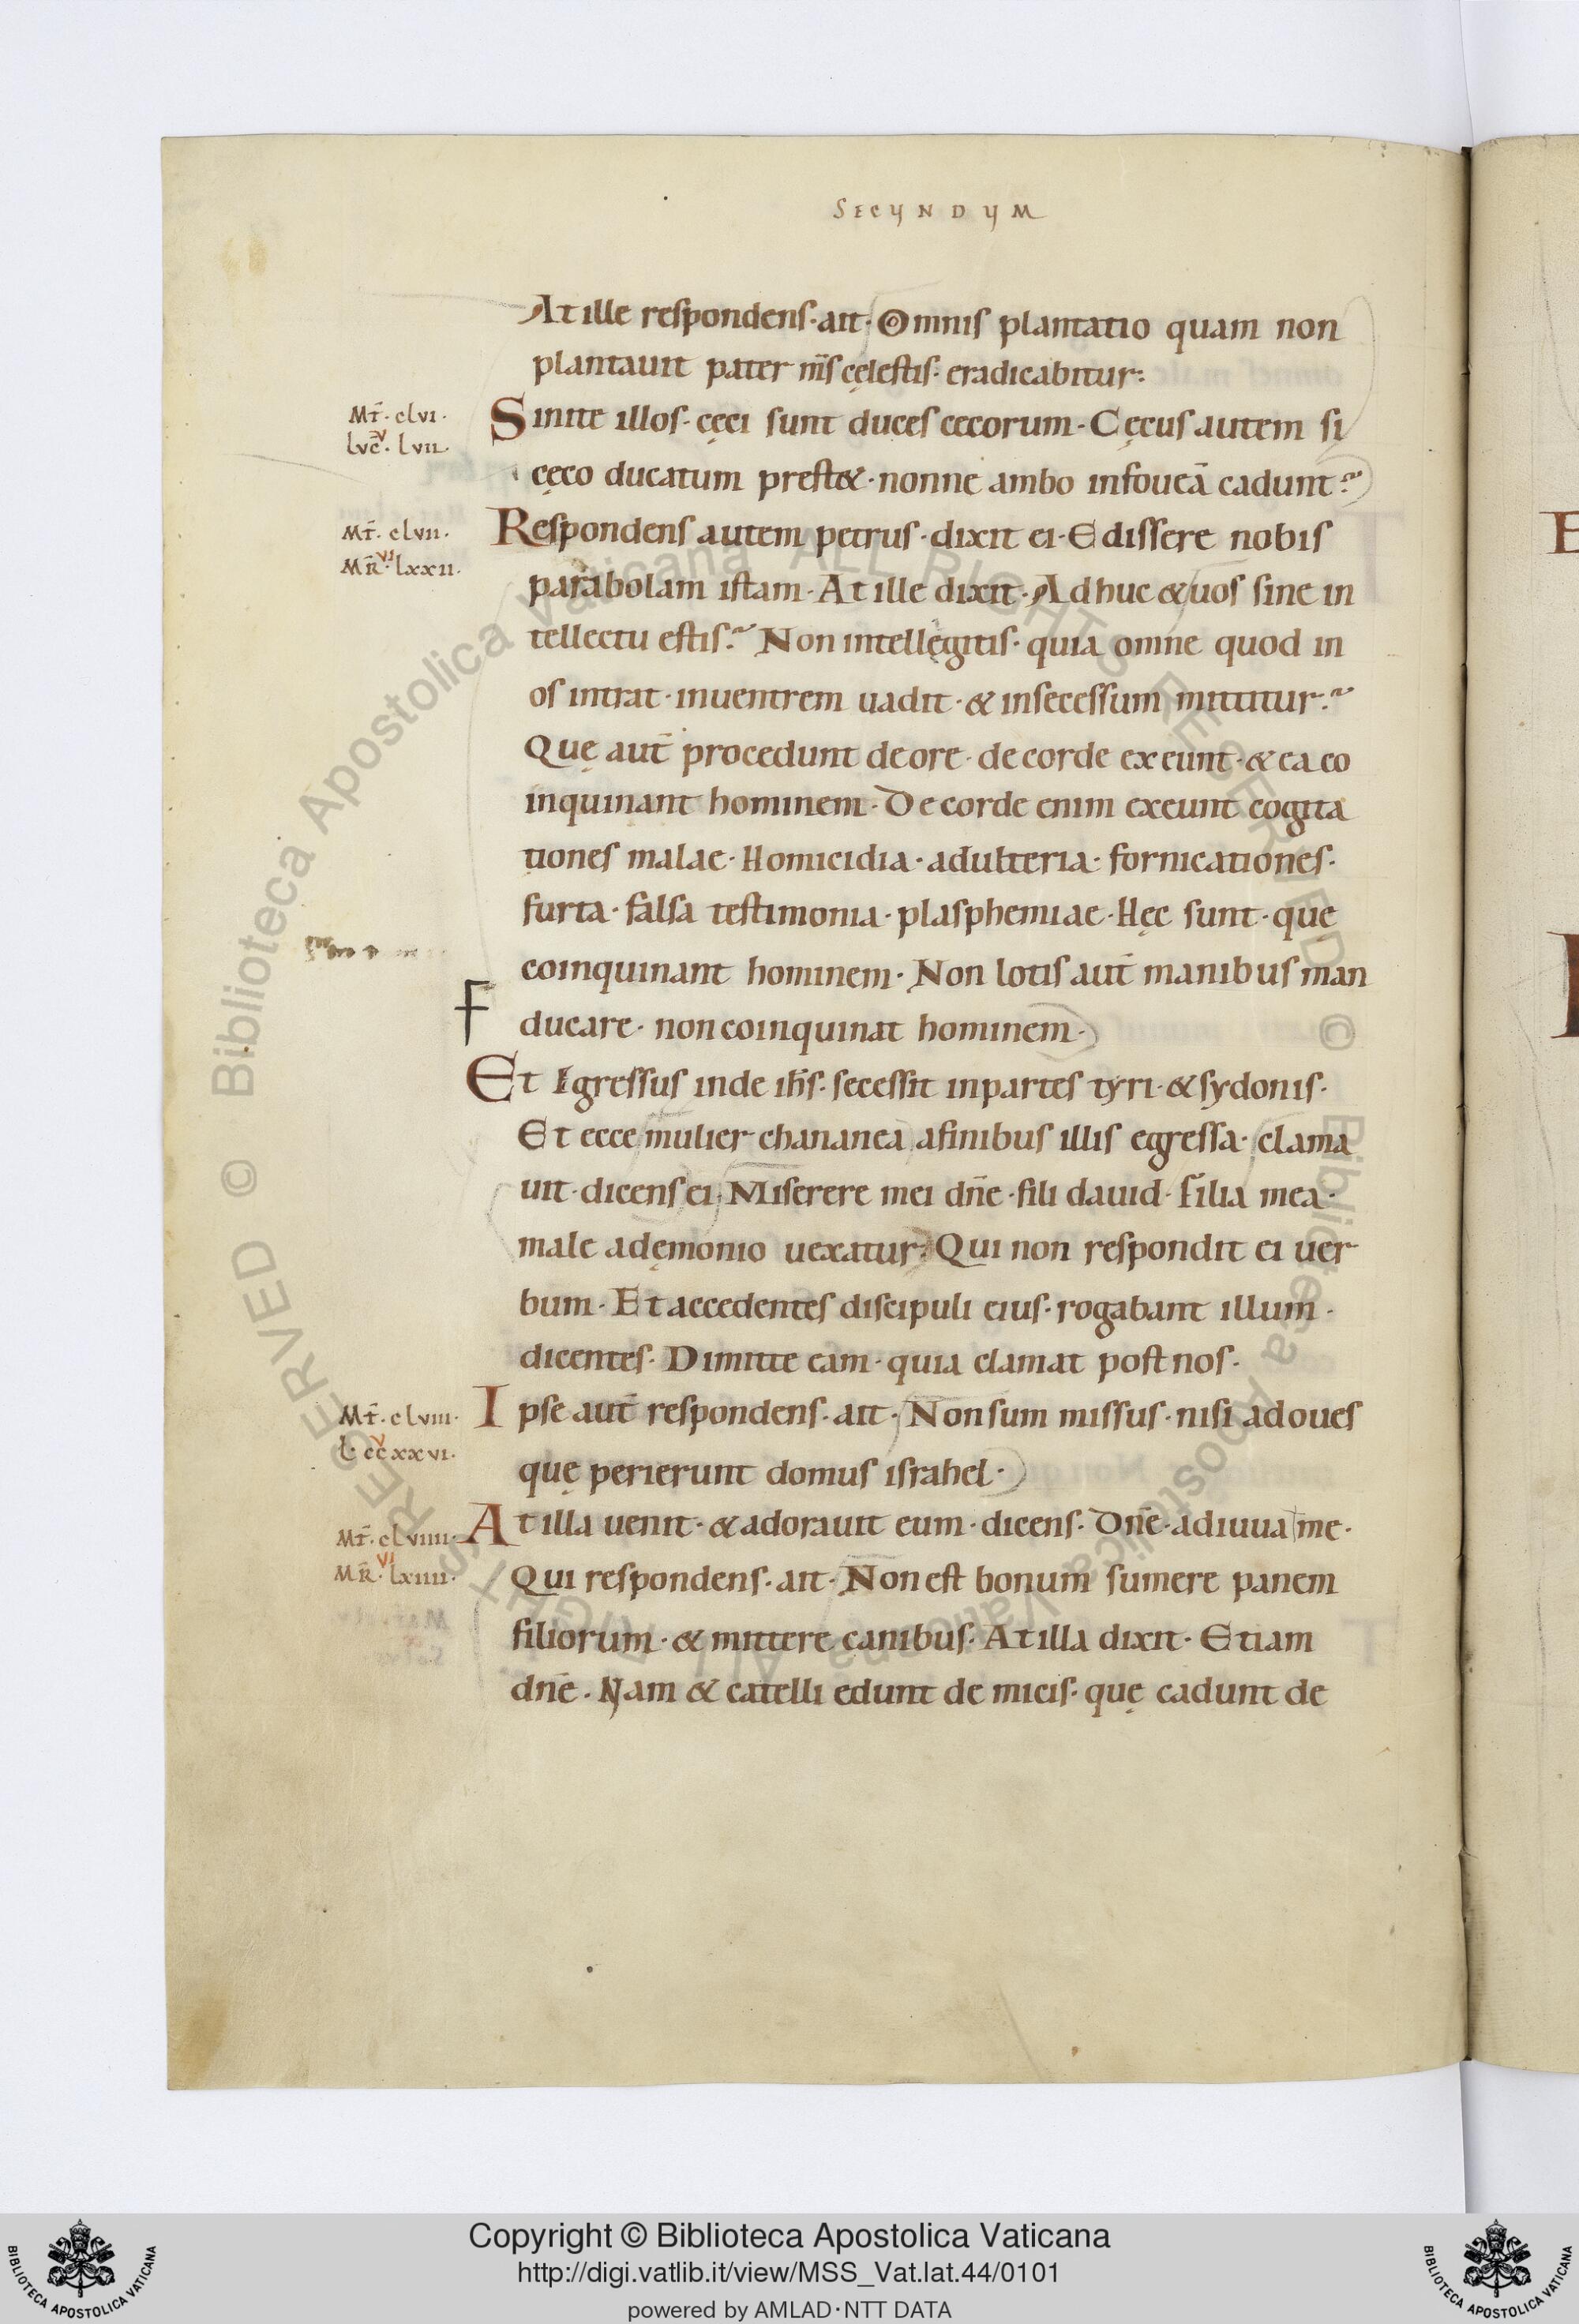 SECUNDUM
At ille respondens· ait· Omnis plantatio quam non
plantauit pater m̄s cęlestis· eradicabitur:
Mt̄· clvi·
Sinite illos· cęci sunt duces cecorum· Cęcus autem si
v
lvc̄· lvii·
cęco ducatum prest&· nonne ambo infoueā cadunt?
Mt̄· clvii·
Respondens autem petrus· dixit ei· Edissere nobis
vi
MR̄· lxxii·
parabolam istam· At ille dixit· Adhuc & uos sine in
tellectu estis? Non intellegitis· quia omne quod in
os intrat· inuentrem uadit· & insecessum mittitur?
Quę aut̄ procedunt deore· decorde exeunt· & ea co
inquinant hominem· Decorde enim exeunt cogita
tiones malae· Homicidia· adulteria· fornicationes·
furta· falsa testimonia· plasphemiae· Hęc sunt· quę
coinquinant hominem· Non lotis aut̄ manibus man
F
ducare· non coinquinat hominem·
Et Egressus inde ih̄s· secessit inpartes tyri· & sydonis·
Et ecce mulier chananea afinibus illis egressa· clama
uit· dicens ei· Miserere mei dn̄e· fili dauid· filia mea·
male adęmonio uexatur· Qui non respondit ei uer
bum· Et accedentes discipuli eius· rogabant illum·
dicentes· Dimitte eam· quia clamat post nos·
Mt̄· clviii·
Ipse aut̄ respondens· ait· Non sum missus· nisi ad oues
v
l· ccxxvi·
quę perierunt domus israhel·
Mt̄· clviiii·
At illa uenit· & adorauit eum· dicens· Dn̄e· adiuua me·
vi
MR̄· lxiiii·
Qui respondens· ait· Non est bonum sumere panem
filiorum· & mittere canibus· At illa dixit· Etiam
dn̄e· Nam & catelli edunt de micis· quę cadunt de
Copyright © Biblioteca Apostolica Vaticana
http://digi.vatlib.it/view/MSS_Vat.lat.44/0101
powered by AMLAD·NTT DATA
BIBLIOTECA APOSTOLICA VATICANA
BIBLIOTECA APOSTOLICA VATICANA
© Biblioteca Apostolica Vaticana ALL RIGHTS RESERVED © Biblioteca Apostolica Vaticana ALL RIGHTS RESERVED